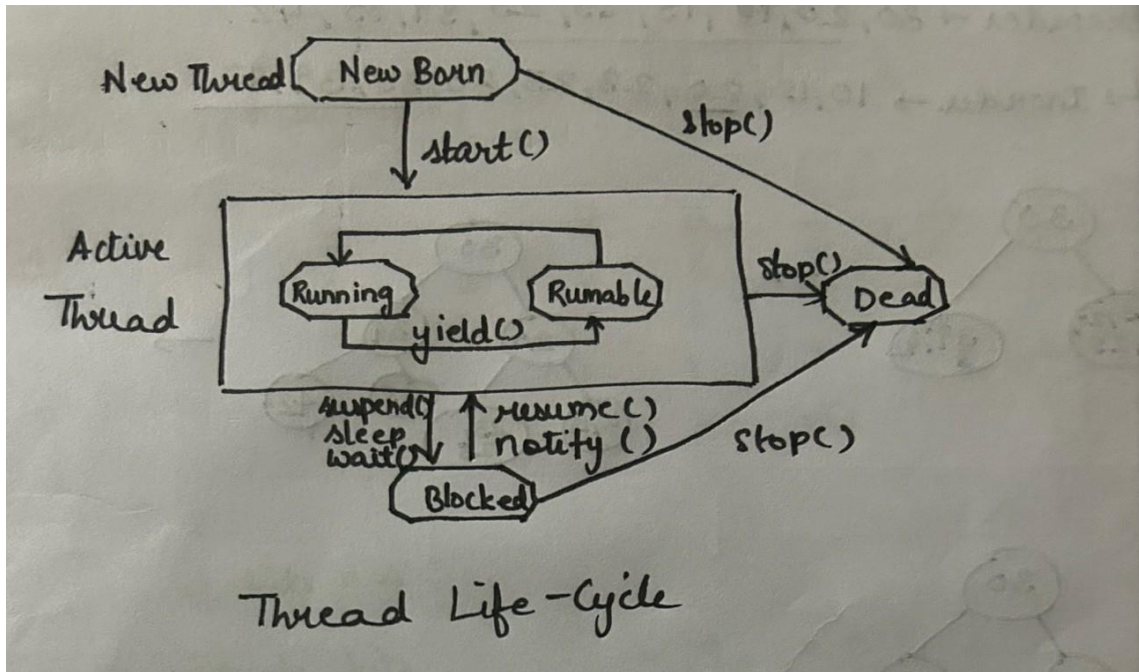 New Thread
New Born
start()
stop()
Active
Thread
Running
Rumable
yield()
stop()
Dead
suspend()
sleep
wait()
resume()
notify()
stop()
Blocked
Thread Life-Cycle